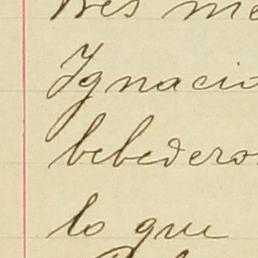 tres me
Ignacio
bebedero
lo que